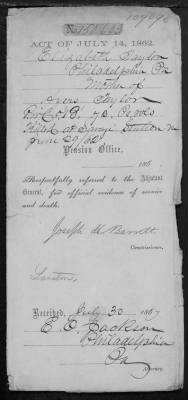 ACT OF JULY 14, 1862.
Elizabeth Taylor
Philadelphia Pa
Mother of
Taylor
Killed at Savage Station Va
June 29/62
Pension Office,
186
Respectfully referred to the Adjutant
General, for official evidence of service
and death.
Joseph H Barrett
Commissioner.
Received, July 30 1867
E. E. Jackson
Philadelphia
Pa
Attorney.